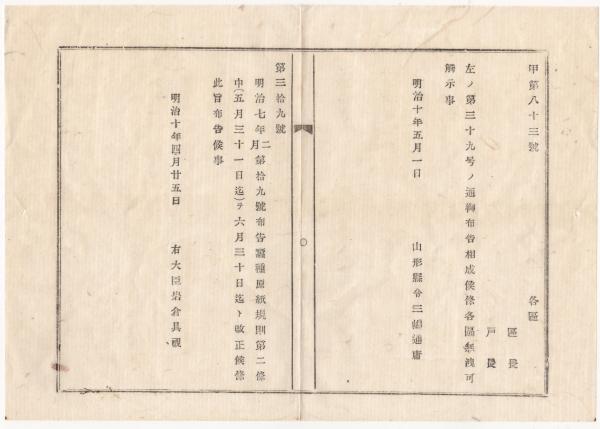 甲第八十三號
各區
區長
戸長
左ノ第三十九号ノ通御布告相成候條各區無洩可
觸示事
明治十年五月一日　山形縣令三島通庸
第三拾九號
明治七年二月第拾九號布告蠶種原紙規則第二條
中(五月三十一日迄)ヲ六月三十日迄ト改正候條
此旨布告候事
明治十年四月廿五日　右大臣岩倉具視